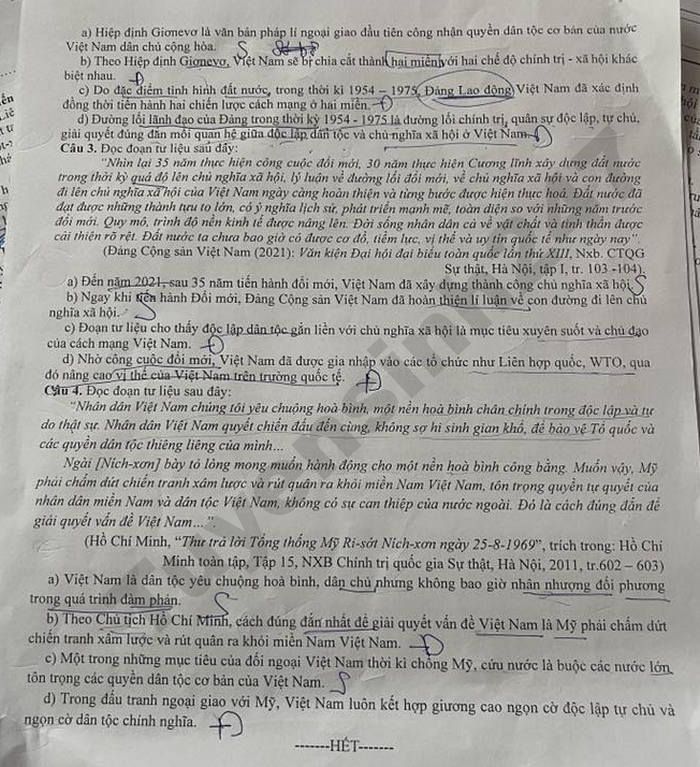 a) Hiệp định Giơnevơ là văn bản pháp lí ngoại giao đầu tiên công nhận quyền dân tộc cơ bản của nước
Việt Nam dân chủ cộng hòa. S
b) Theo Hiệp định Giơnevơ, Việt Nam sẽ bị chia cắt thành hai miền với hai chế độ chính trị - xã hội khác
biệt nhau. Đ
c) Do đặc điểm tình hình đất nước, trong thời kì 1954 – 1975, Đảng Lao động Việt Nam đã xác định
đồng thời tiến hành hai chiến lược cách mạng ở hai miền. Đ
d) Đường lối lãnh đạo của Đảng trong thời kỳ 1954 - 1975 là đường lối chính trị, quân sự độc lập, tự chủ,
giải quyết đúng đắn mối quan hệ giữa độc lập dân tộc và chủ nghĩa xã hội ở Việt Nam. Đ
Câu 3. Đọc đoạn tư liệu sau đây:
"Nhìn lại 35 năm thực hiện công cuộc đổi mới, 30 năm thực hiện Cương lĩnh xây dựng đất nước
trong thời kỳ quá độ lên chủ nghĩa xã hội, lý luận về đường lối đổi mới, về chủ nghĩa xã hội và con đường
đi lên chủ nghĩa xã hội của Việt Nam ngày càng hoàn thiện và từng bước được hiện thực hoá. Đất nước đã
đạt được những thành tựu to lớn, có ý nghĩa lịch sử, phát triển mạnh mẽ, toàn diện so với những năm trước
đổi mới. Quy mô, trình độ nền kinh tế được nâng lên. Đời sống nhân dân cả về vật chất và tinh thần được
cải thiện rõ rệt. Đất nước ta chưa bao giờ có được cơ đồ, tiềm lực, vị thế và uy tín quốc tế như ngày nay".
(Đảng Cộng sản Việt Nam (2021): Văn kiện Đại hội đại biểu toàn quốc lần thứ XIII, Nxb. CTQG
Sự thật, Hà Nội, tập I, tr. 103 -104).
a) Đến năm 2021, sau 35 năm tiến hành đổi mới, Việt Nam đã xây dựng thành công chủ nghĩa xã hội. S
b) Ngay khi tiến hành Đổi mới, Đảng Cộng sản Việt Nam đã hoàn thiện lí luận về con đường đi lên chủ
nghĩa xã hội. S
c) Đoạn tư liệu cho thấy độc lập dân tộc gắn liền với chủ nghĩa xã hội là mục tiêu xuyên suốt và chủ đạo
của cách mạng Việt Nam. Đ
d) Nhờ công cuộc đổi mới, Việt Nam đã được gia nhập vào các tổ chức như Liên hợp quốc, WTO, qua
đó nâng cao vị thế của Việt Nam trên trường quốc tế. Đ
Câu 4. Đọc đoạn tư liệu sau đây:
"Nhân dân Việt Nam chúng tôi yêu chuộng hoà bình, một nền hoà bình chân chính trong độc lập và tự
do thật sự. Nhân dân Việt Nam quyết chiến đấu đến cùng, không sợ hi sinh gian khổ, để bảo vệ Tổ quốc và
các quyền dân tộc thiêng liêng của mình...
Ngài [Ních-xơn] bày tỏ lòng mong muốn hành động cho một nền hoà bình công bằng. Muốn vậy, Mỹ
phải chấm dứt chiến tranh xâm lược và rút quân ra khỏi miền Nam Việt Nam, tôn trọng quyền tự quyết của
nhân dân miền Nam và dân tộc Việt Nam, không có sự can thiệp của nước ngoài. Đó là cách đúng đắn để
giải quyết vấn đề Việt Nam...".
(Hồ Chí Minh, "Thư trả lời Tổng thống Mỹ Ri-sớt Ních-xơn ngày 25-8-1969", trích trong: Hồ Chí
Minh toàn tập, Tập 15, NXB Chính trị quốc gia Sự thật, Hà Nội, 2011, tr.602 – 603)
a) Việt Nam là dân tộc yêu chuộng hoà bình, dân chủ nhưng không bao giờ nhân nhượng đối phương
trong quá trình đàm phán. S
b) Theo Chủ tịch Hồ Chí Minh, cách đúng đắn nhất để giải quyết vấn đề Việt Nam là Mỹ phải chấm dứt
chiến tranh xâm lược và rút quân ra khỏi miền Nam Việt Nam. Đ
c) Một trong những mục tiêu của đối ngoại Việt Nam thời kì chống Mỹ, cứu nước là buộc các nước lớn
tôn trọng các quyền dân tộc cơ bản của Việt Nam. S
d) Trong đấu tranh ngoại giao với Mỹ, Việt Nam luôn kết hợp giương cao ngọn cờ độc lập tự chủ và
ngọn cờ dân tộc chính nghĩa. Đ
-------HẾT-------